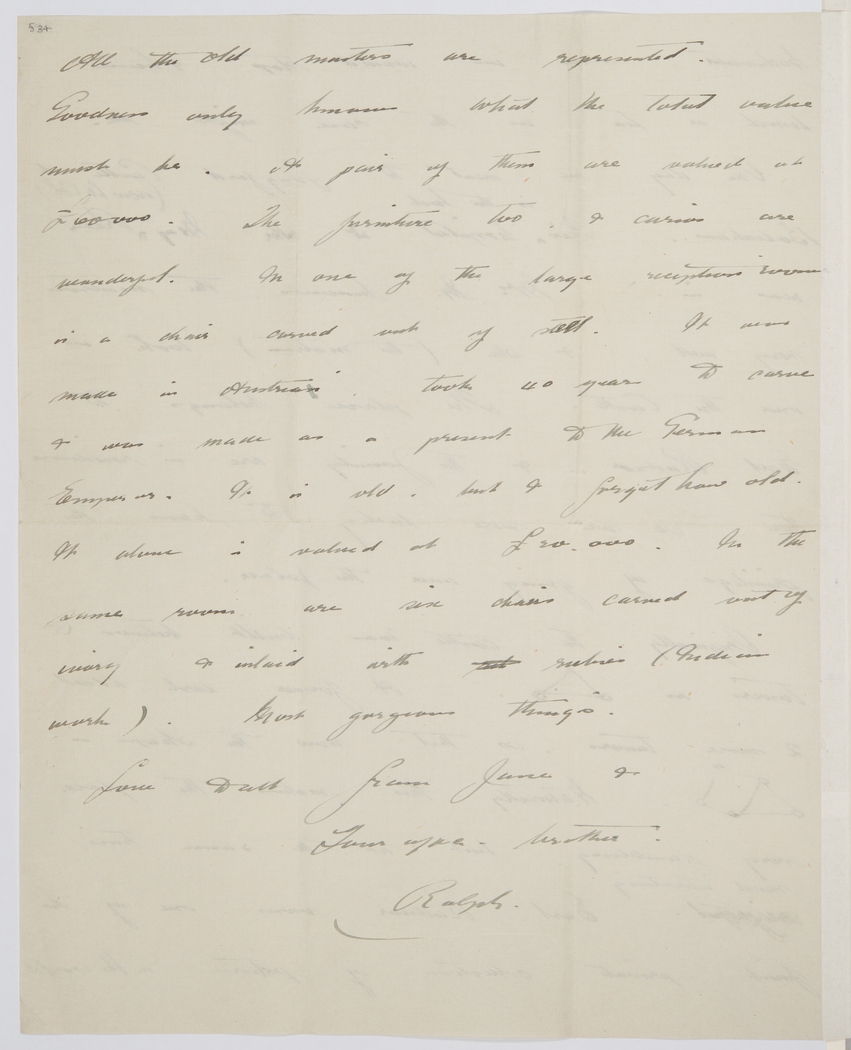 534
All the old masters are represented.
Goodness only knows what the total value
must be. A pair of them are valued at
£60000. The furniture too, & curios are
wonderful. In one of the large reception rooms
is a chair carved out of steel. It was
made in Austria, took 40 years to carve
& was made as a present to the German
Emperor. It is old, but I forget how old.
It alone is valued at £20,000. In the
same room are six chairs carved out of
ivory & inlaid with rubies (Indian
work). Most gorgeous things.
Love to all from June &
Your affec. brother.
Ralph.